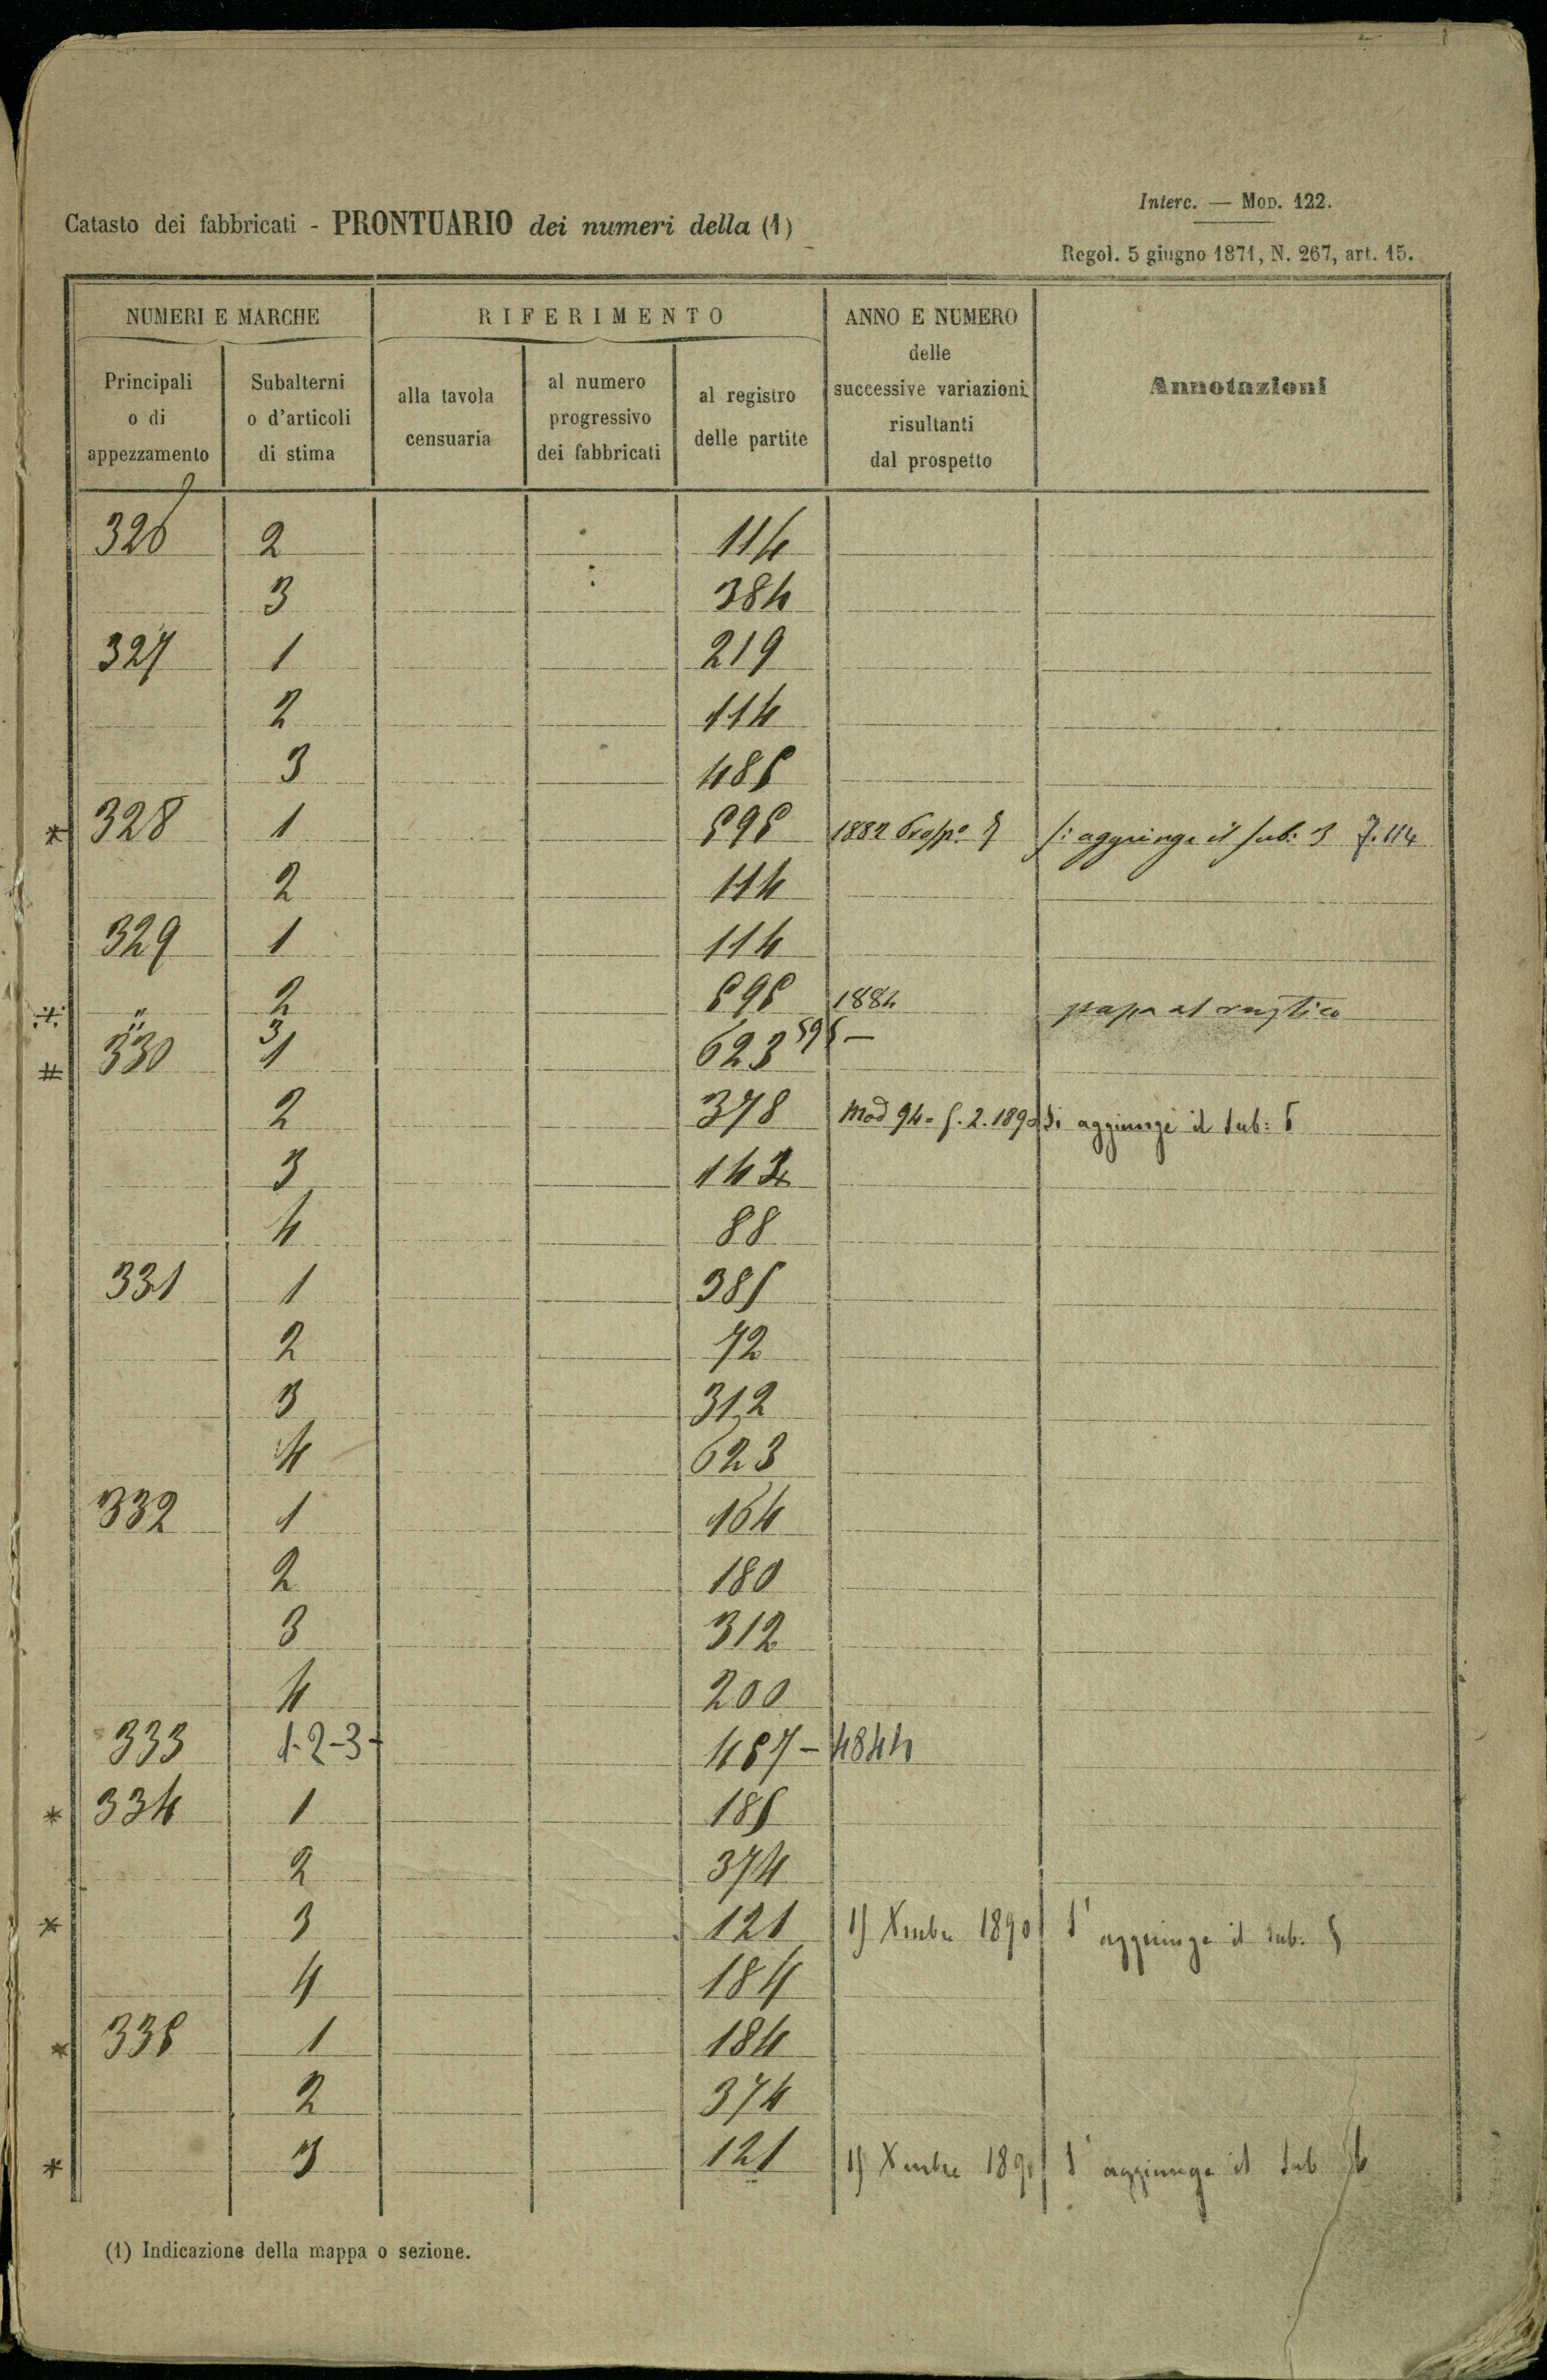 Interc. — Mod. 122.
Catasto dei fabbricati - PRONTUARIO dei numeri della (1)
Regol. 5 giugno 1871, N. 267, art. 15.
NUMERI E MARCHE RIFERIMENTO ANNO E NUMERO delle successive variazioni risultanti dal prospetto Annotazioni
Principali o di appezzamento Subalterni o d'articoli di stima alla tavola censuaria al numero progressivo dei fabbricati al registro delle partite
326 2 114
3 384
327 1 219
2 114
3 485
* 328 1 595 1882 Prosp.o si aggiunge il sub: 3 7.114
2 114
329 1 114
" 2 595 1884 passa al rustico
" 3 595 —
# 330 1 623
2 378 Mod 94 = 5.2.1890 Si aggiunge il sub: 5
3 143
4 88
331 1 385
2 72
3 312
4 623
332 1 164
2 180
3 312
4 200
333 1-2-3- 457 - 4844
* 334 1 185
2 374
* 3 121 15 Xmbre 1890 S'aggiunge il sub. 5
4 184
* 335 1 184
2 374
* 3 121 15 Xmbre 1890 S'aggiunge il sub 4
(1) Indicazione della mappa o sezione.